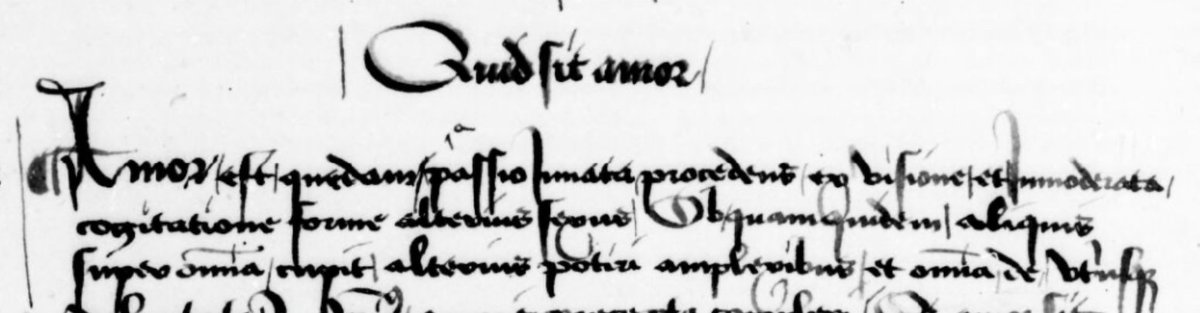 Quid sit amor
Amor est quedam passio innata procedens ex visione et inmoderata
cogitatione forme alterius sexus Ob quam quidem aliquis
super omnia cupit alterius potiri amplexibus et omnia de utriusque